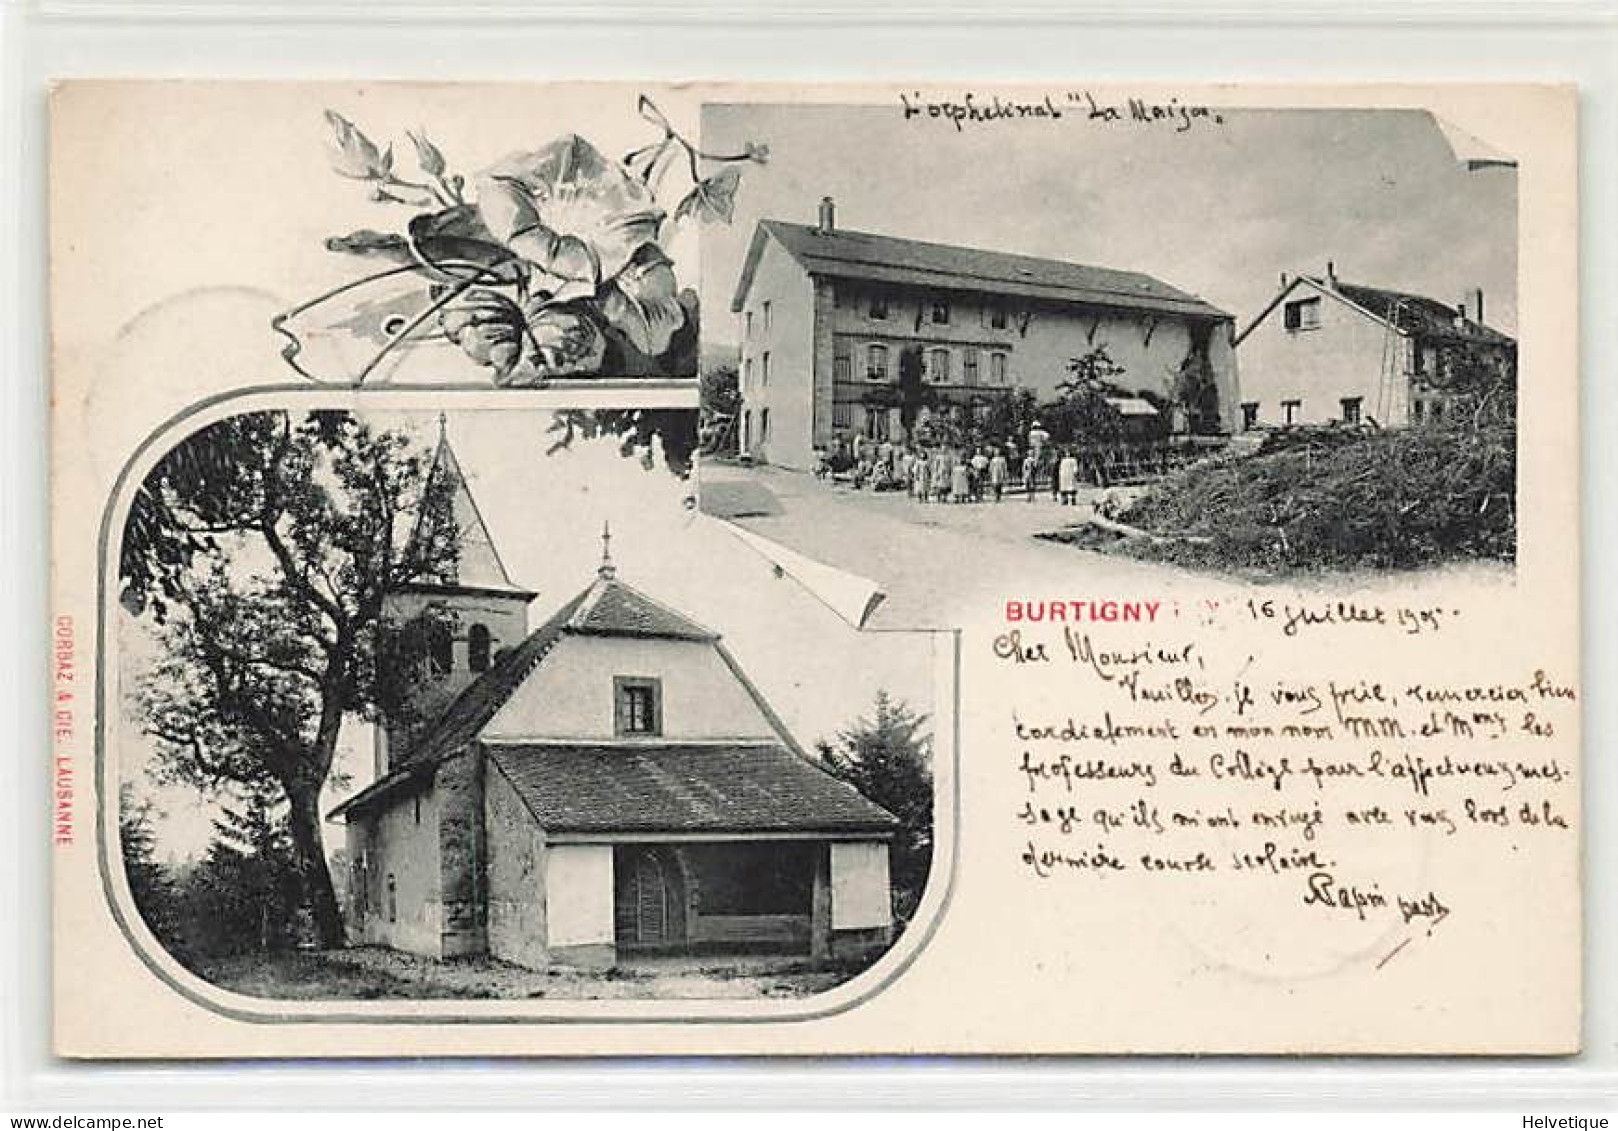 L'orphelinat "La Maison"
BURTIGNY 16 Juillet 1905.
Cher Monsieur,
Veuillez, je vous prie, remercier bien
cordialement en mon nom MM. et Mmes les
professeurs du Collège pour l'affectueux mes-
sage qu'ils m'ont envoyé avec vous lors de la
dernière course scolaire.
CORBAZ & CIE. LAUSANNE
Helvetique